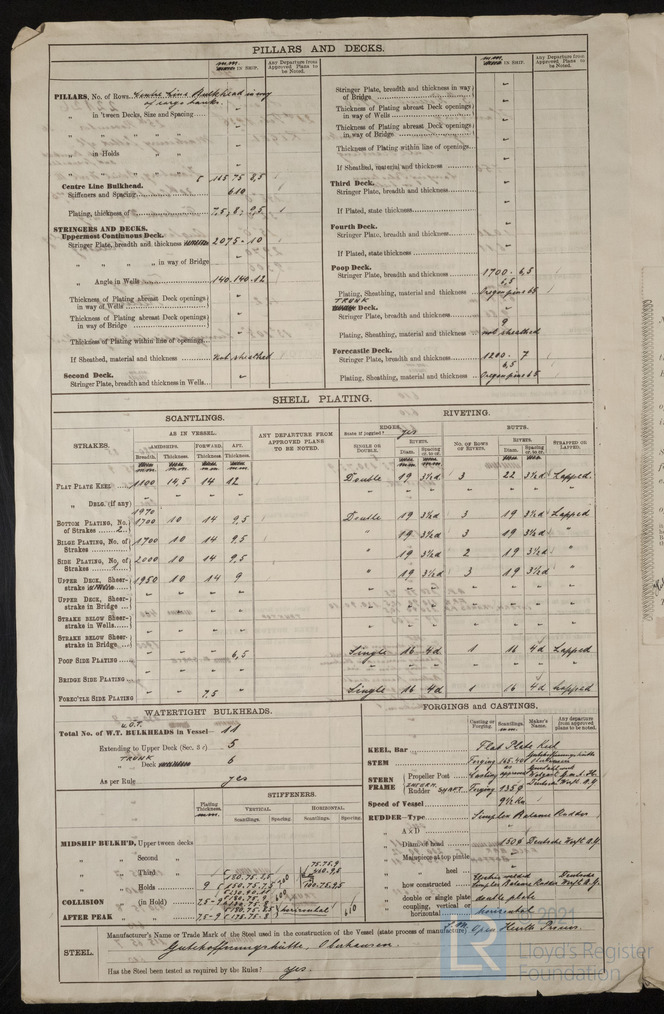 PILLARS AND DECKS.
m.m. IN SHIP.
Any Departure from Approved Plans to be Noted.
m.m. IN SHIP.
Any Departure from Approved Plans to be Noted.
PILLARS, No. of Rows Centre Line Bulkhead in way
of cargo tanks.
„ in 'tween Decks, Size and Spacing
„ „ „ „ „
„ in Holds „ „
„ „ „ „
Centre Line Bulkhead.
Stiffeners and Spacing 610
Plating, thickness of 7,5, 8, 9,5
STRINGERS AND DECKS.
Uppermost Continuous Deck.
Stringer Plate, breadth and thickness 2075 - 10
„ „ „ „ in way of Bridge
„ Angle in Wells 140.140.12
Thickness of Plating abreast Deck openings in way of Wells
Thickness of Plating abreast Deck openings in way of Bridge
Thickness of Plating within line of openings
If Sheathed, material and thickness Not sheathed
Second Deck.
Stringer Plate, breadth and thickness in Wells
Stringer Plate, breadth and thickness in way of Bridge
Thickness of Plating abreast Deck openings in way of Wells
Thickness of Plating abreast Deck openings in way of Bridge
Thickness of Plating within line of openings
If Sheathed, material and thickness
Third Deck.
Stringer Plate, breadth and thickness
If Plated, state thickness
Fourth Deck.
Stringer Plate, breadth and thickness
If Plated, state thickness
Poop Deck.
Stringer Plate, breadth and thickness 1700 - 6,5
Plating, Sheathing, material and thickness Oregon pine 65
TRUNK Deck.
Stringer Plate, breadth and thickness
9
Plating, Sheathing, material and thickness not sheathed
Forecastle Deck.
Stringer Plate, breadth and thickness 1200 - 7
6,5
Plating, Sheathing, material and thickness Oregon pine 65
SHELL PLATING.
SCANTLINGS.
RIVETING.
STRAKES.
AS IN VESSEL.
ANY DEPARTURE FROM APPROVED PLANS TO BE NOTED.
EDGES.
State if joggled? yes
BUTTS.
AMIDSHIPS. FORWARD. AFT.
SINGLE OR DOUBLE. RIVETS. No. OF ROWS OF RIVETS. RIVETS. STRAPPED OR LAPPED.
Breadth. Thickness. Thickness. Thickness.
Diam. Spacing cr. to cr. Diam. Spacing cr. to cr.
FLAT PLATE KEEL 1800 14,5 14 12 Double 19 3½d 3 22 3½d Lapped.
„ DBLG. (if any)
1970
BOTTOM PLATING, No. of Strakes 2 1700 10 14 9,5 Double 19 3½d 3 19 3½d Lapped
BILGE PLATING, No. of Strakes 1700 10 14 9,5 „ 19 3½d 3 19 3½d „
SIDE PLATING, No. of Strakes 1 2000 10 14 9,5 „ 19 3½d 2 19 3½d „
UPPER DECK, Sheerstrake in Wells 1950 10 14 9 „ 19 3½d 3 19 3½d „
UPPER DECK, Sheerstrake in Bridge
STRAKE BELOW Sheerstrake in Wells
STRAKE BELOW Sheerstrake in Bridge
POOP SIDE PLATING 6,5 Single 16 4d 1 16 4d Lapped
BRIDGE SIDE PLATING
FORECTLE SIDE PLATING 7,5 Single 16 4d 1 16 4d Lapped
WATERTIGHT BULKHEADS.
Total No. of W.T. BULKHEADS in Vessel 11
Extending to Upper Deck (Sec. 3 c) 5
„ TRUNK Deck 6
As per Rule yes
STIFFENERS.
Plating Thickness m.m.
VERTICAL. HORIZONTAL.
Scantlings. Spacing. Scantlings. Spacing.
MIDSHIP BULKH'D, Upper tween decks
„ „ Second „
„ „ Third „
„ „ Holds 9
COLLISION „ (in Hold)
AFTER PEAK „ 7,5-9 horizontal
FORGINGS AND CASTINGS.
Casting or Forging. Scantlings. Maker's Name. Any departure from approved plans to be noted.
KEEL, Bar Flat Plate Keel
STEM Forging
STERN FRAME Propeller Post Casting approved
Rudder Forging
Speed of Vessel 9½ Kn
RUDDER—Type Simplex Balance Rudder
„ A x D
„ Diam. of head Deutsche Werft A.G.
„ Mainpiece at top pintle
„ „ heel
„ how constructed Simplex Balance Rudder
„ double or single plate double plate
„ coupling, vertical or horizontal horizontal
STEEL.
Manufacturer's Name or Trade Mark of the Steel used in the construction of the Vessel (state process of manufacture). S.M. Open Hearth Process.
Gutehoffnungshütte, Oberhausen.
Has the Steel been tested as required by the Rules? yes.
2021
LR Lloyd's Register
Foundation